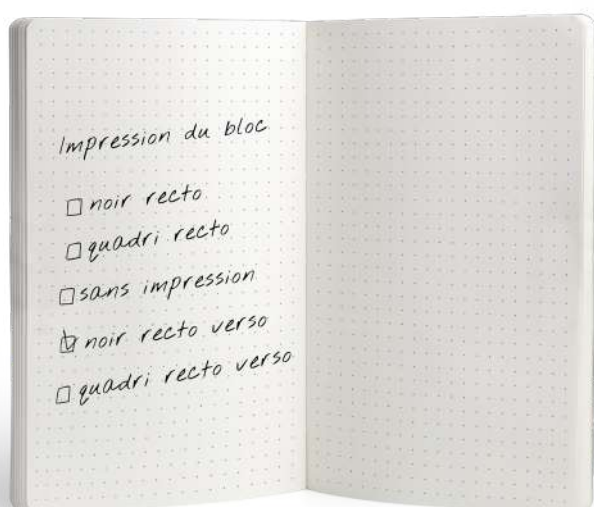 Impression du bloc
☐ noir recto
☐ quadri recto
☐ sans impression
☑ noir recto verso
☐ quadri recto verso